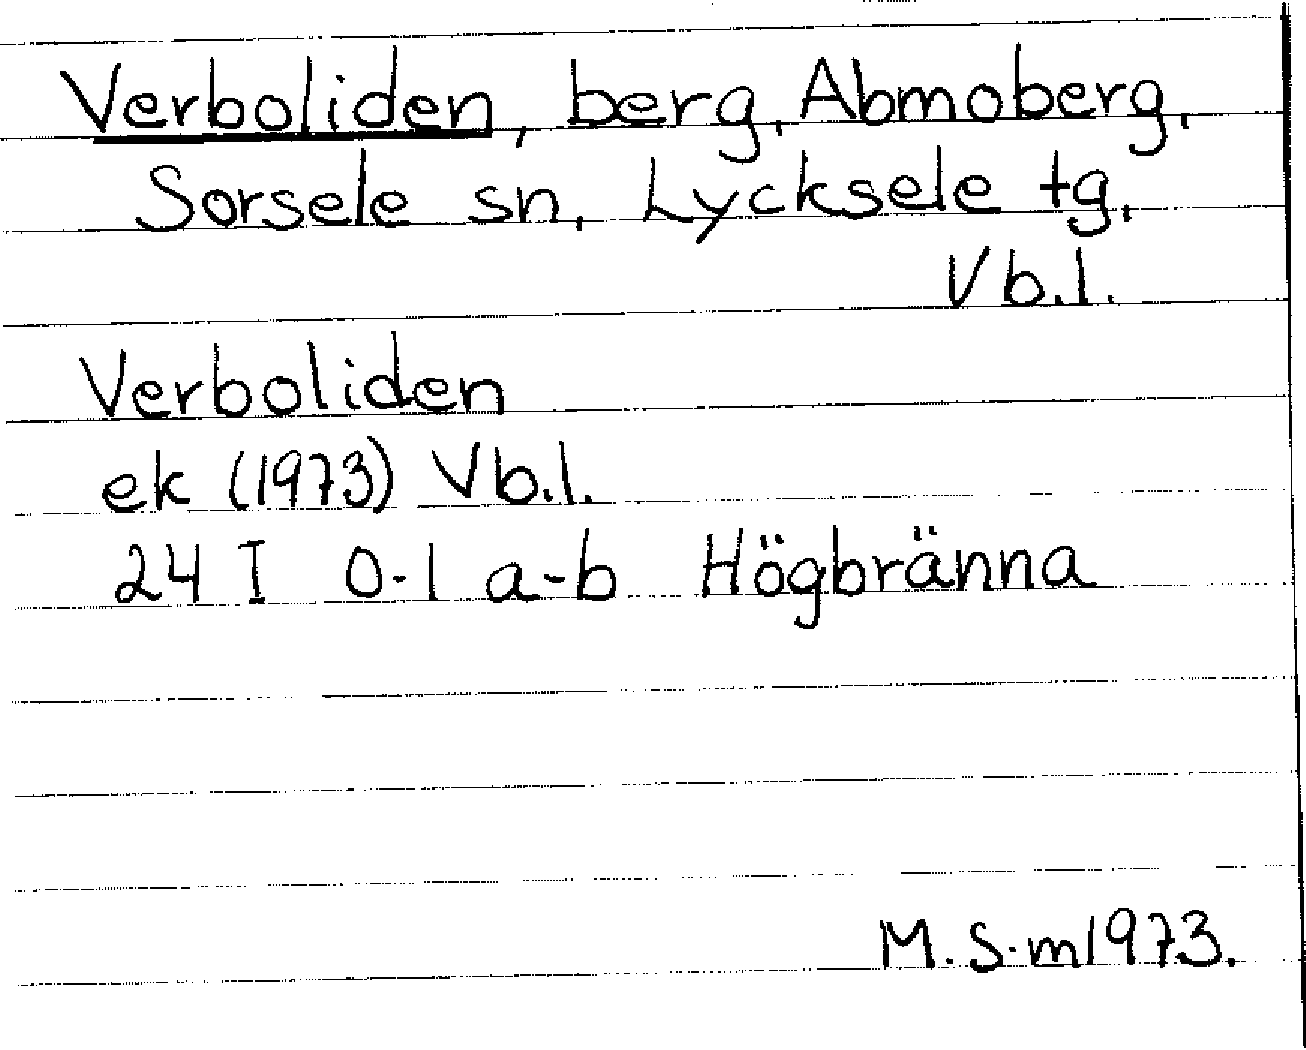 Verboliden, berg, Abmoberg,
Sorsele sn, Lycksele tg,
Vb.l.
Verboliden
ek (1973) Vb.l.
24 I 0-1 a-b Högbränna
M.S.m 1973.